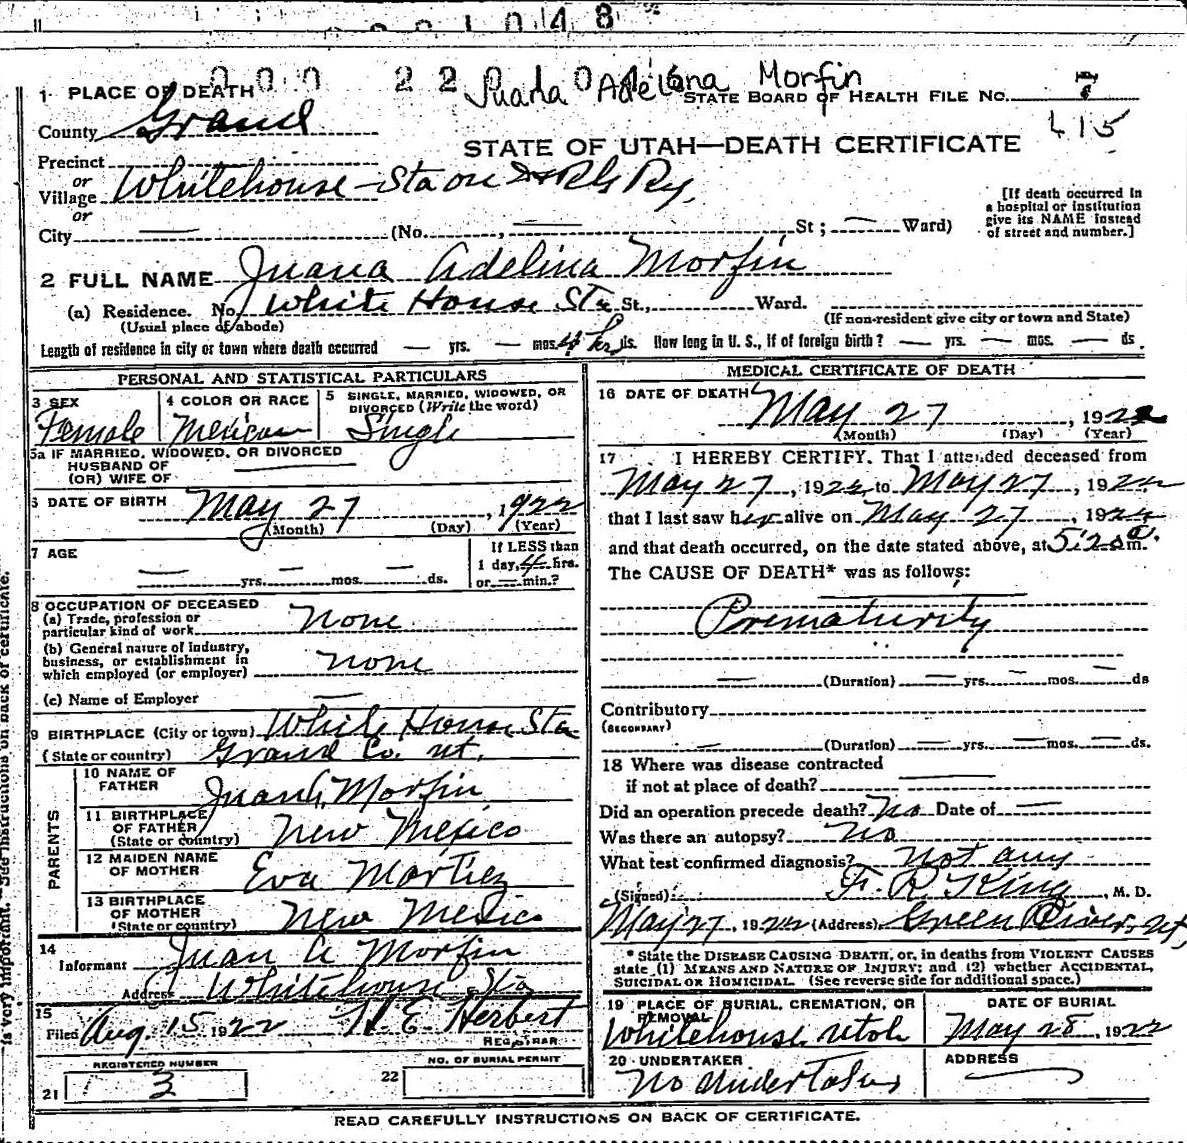 11
48
000 220 10
Juana Adelena Morfin
1 PLACE OF DEATH
STATE BOARD OF HEALTH FILE No. 7
415
County Grand
STATE OF UTAH—DEATH CERTIFICATE
Precinct
or
Village Whitehouse-Sta on D & RG Ry.
or
City — (No. , — St; — Ward)
[If death occurred in
a hospital or institution
give its NAME instead
of street and number.]
2 FULL NAME Juana Adelina Morfin
(a) Residence. No. White House Sta St., Ward.
(Usual place of abode) (If non-resident give city or town and State)
Length of residence in city or town where death occurred — yrs. — mos. 4 hrs ds. How long in U. S., if of foreign birth? — yrs. — mos. — ds.
PERSONAL AND STATISTICAL PARTICULARS
3 SEX
Female
4 COLOR OR RACE
Mexican
5 SINGLE, MARRIED, WIDOWED, OR
DIVORCED (Write the word)
Single
5a IF MARRIED, WIDOWED, OR DIVORCED
HUSBAND OF
(OR) WIFE OF
6 DATE OF BIRTH May 27, 1922
(Month) (Day) (Year)
7 AGE
— yrs. — mos. — ds.
If LESS than
1 day, 4 hrs.
or — min.?
8 OCCUPATION OF DECEASED
(a) Trade, profession or
particular kind of work None
(b) General nature of industry,
business, or establishment in
which employed (or employer) none
(c) Name of Employer —
9 BIRTHPLACE (City or town) White House Sta
(State or country) Grand Co. Ut.
PARENTS
10 NAME OF
FATHER Juan A. Morfin
11 BIRTHPLACE
OF FATHER
(State or country) New Mexico
12 MAIDEN NAME
OF MOTHER Eva Martiez
13 BIRTHPLACE
OF MOTHER
(State or country) New Mexico
14
Informant Juan A Morfin
Address Whitehouse Sta
15
Filed Aug. 15 1922 H. E. Herbert
REGISTRAR
REGISTERED NUMBER
21 3
NO. OF BURIAL PERMIT
22
MEDICAL CERTIFICATE OF DEATH
16 DATE OF DEATH
May 27, 1922
(Month) (Day) (Year)
17 I HEREBY CERTIFY, That I attended deceased from
May 27, 1922, to May 27, 1922,
that I last saw her alive on May 27, 1922
and that death occurred, on the date stated above, at 5:20 a m.
The CAUSE OF DEATH* was as follows:
Prematurity
— (Duration) — yrs. — mos. — ds
Contributory
(SECONDARY)
— (Duration) — yrs. — mos. — ds.
18 Where was disease contracted
if not at place of death?
Did an operation precede death? No Date of —
Was there an autopsy? No
What test confirmed diagnosis? Not any
(Signed) F. R. King, M. D.
May 27, 1922 (Address) Green River, Ut,
* State the DISEASE CAUSING DEATH, or, in deaths from VIOLENT CAUSES
state (1) MEANS AND NATURE OF INJURY; and (2) whether ACCIDENTAL,
SUICIDAL OR HOMICIDAL. (See reverse side for additional space.)
19 PLACE OF BURIAL, CREMATION, OR
REMOVAL
Whitehouse, Utah
DATE OF BURIAL
May 28, 1922
20 UNDERTAKER
No Undertaker
ADDRESS
READ CAREFULLY INSTRUCTIONS ON BACK OF CERTIFICATE.
is very important. See instructions on back of certificate.